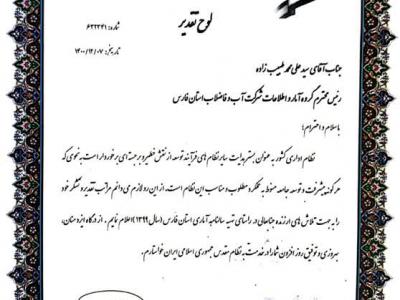 لوح تقدیر
شماره: ۶۲۲۳۴۱
تاریخ: ۱۴۰۰/۱۲/۰۷
جناب آقای سید علی محمد طبیب زاده
رئیس محترم گروه آمار و اطلاعات شرکت آب و فاضلاب استان فارس
با سلام و احترام؛
نظام اداری کشور به عنوان بستر هدایت سایر نظام های فرآیند توسعه از نقش خطیر و برجسته ای برخوردار است به نحوی که
هرگونه پیشرفت و توسعه جامعه منوط به عملکرد مطلوب و مناسب این نظام است، از این رو لازم می دانم مراتب تقدیر و تشکر خود
را به جهت تلاش های ارزنده جنابعالی در راستای تهیه سالنامه آماری استان فارس (سال ۱۳۹۹) اعلام نمایم. از درگاه ایزد منان،
بهروزی و توفیق روز افزون شما را در خدمت به نظام مقدس جمهوری اسلامی ایران خواستارم.